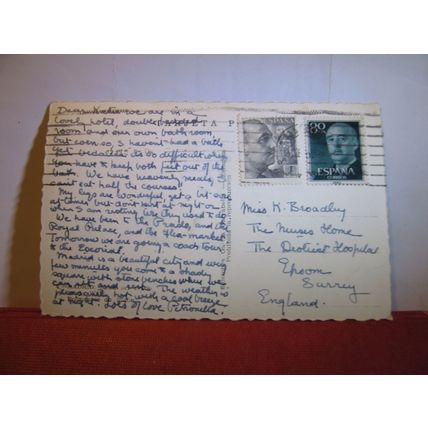 Dear Kwatia we are in a
lovely hotel, double bedded
TARJETA P
room and our own bathroom,
but even so, I havent had a bath
yet because its so difficult when
you have to keep both feet out of the
bath. We have heavenly meals &
can't eat half the courses!!
My legs are wonderful, get a bit weak
at times but don't hurt at night or
when I am resting like they used to do.
We have been to the Prado, and the
Royal Palace, and the flea market
Tomorrow we are going a coach tour
to the Escorial.
Madrid is a beautiful city and every
few minutes you come to a shady
square with stone benches where we
can sit and rest. The weather is
pleasantly hot with a cool breeze
at night. Lots of love Petronella.
ESPAÑA
80
ESPAÑA
CORREOS
Miss K. Broadley
The Nurses Home
The District Hospital
Epsom
Surrey
England.